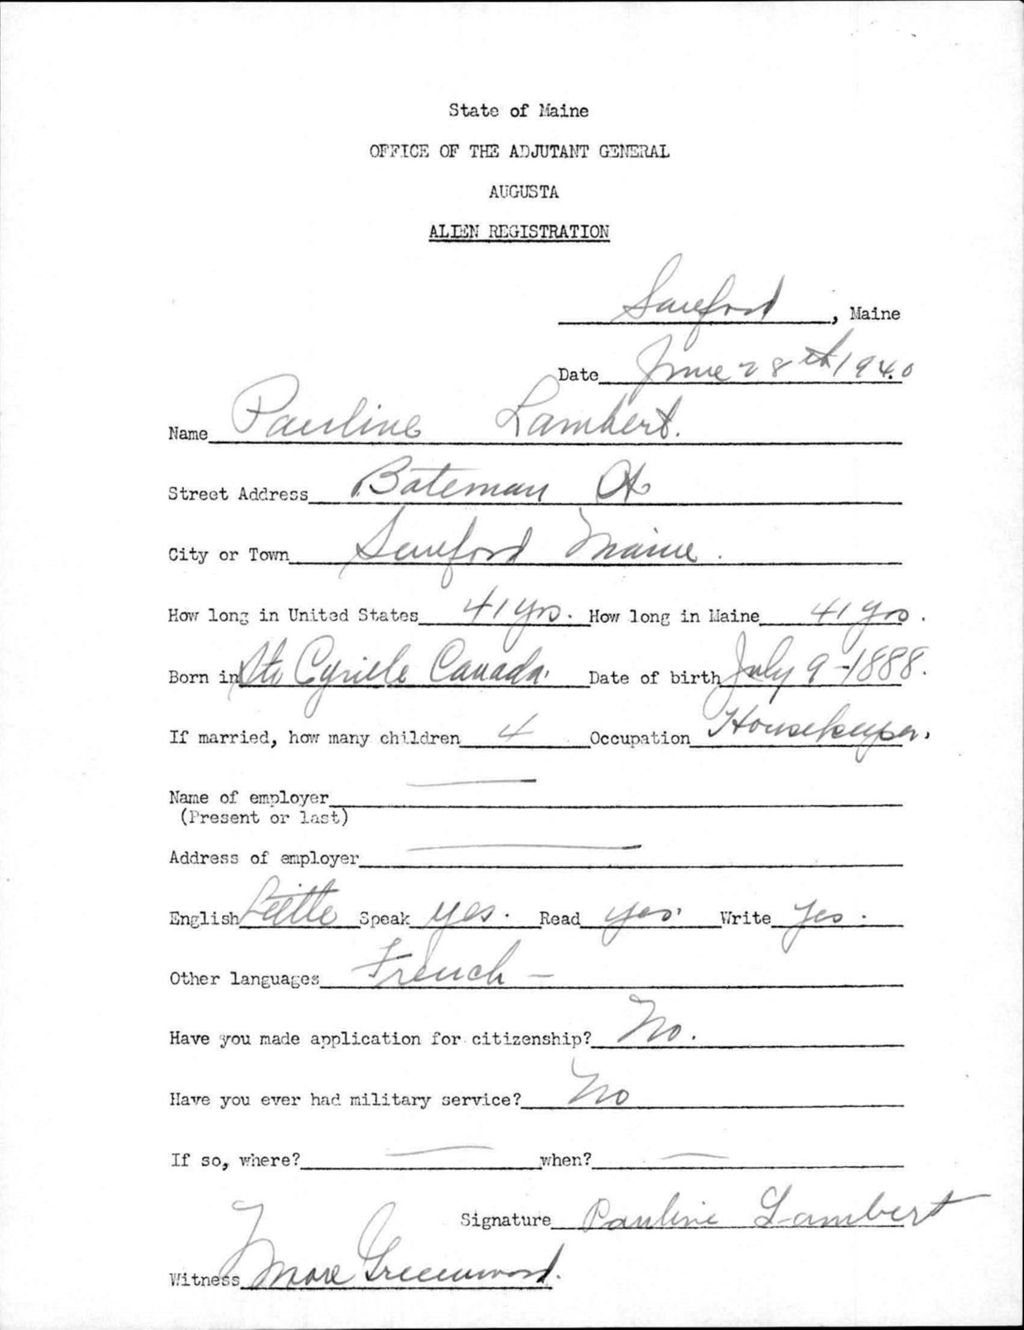 State of Maine
OFFICE OF THE ADJUTANT GENERAL
AUGUSTA
ALIEN REGISTRATION
Sanford, Maine
Date June 28th 1940
Name Pauline Lambert.
Street Address Bateman St
City or Town Sanford Maine.
How long in United States 41 yrs. How long in Maine 41 yrs.
Born in Ste Cyrille Canada. Date of birth July 9-1888.
If married, how many children 4 Occupation Housekeeper.
Name of employer
(Present or last)
Address of employer
English Little Speak yes. Read yes. Write Yes.
Other languages French -
Have you made application for citizenship? No.
Have you ever had military service? No
If so, where? when?
Signature Pauline Lambert
Witness Greenwood.